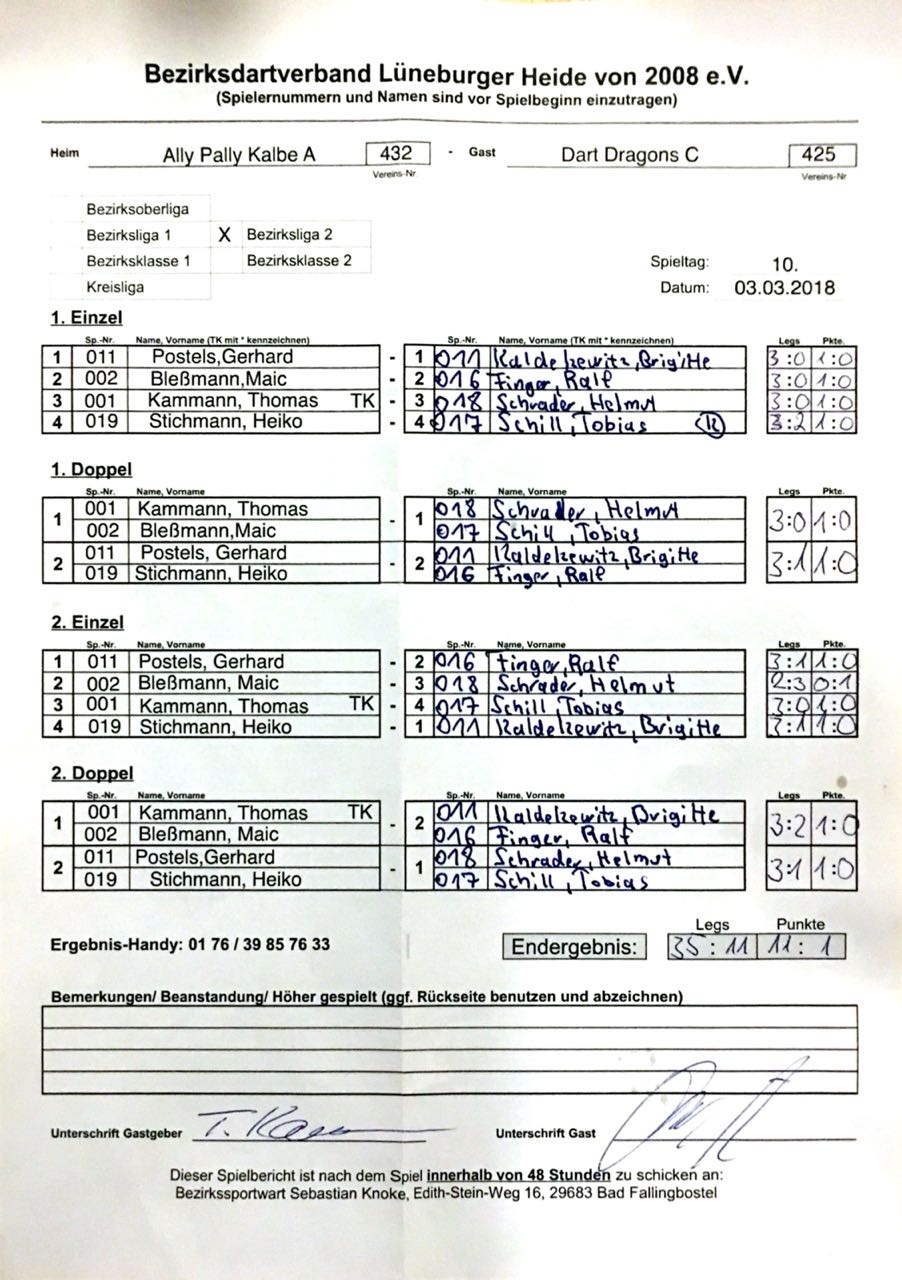 Bezirksdartverband Lüneburger Heide von 2008 e.V.
(Spielernummern und Namen sind vor Spielbeginn einzutragen)
Heim Ally Pally Kalbe A 432 - Gast Dart Dragons C 425
Vereins-Nr Vereins-Nr
Bezirksoberliga
Bezirksliga 1 X Bezirksliga 2
Bezirksklasse 1 Bezirksklasse 2
Kreisliga
Spieltag: 10.
Datum: 03.03.2018
1. Einzel
Sp.-Nr. Name, Vorname (TK mit * kennzeichnen) Sp.-Nr. Name, Vorname (TK mit * kennzeichnen) Legs Pkte.
1 011 Postels,Gerhard - 1 011 Kaldekewitz, Brigitte 3:0 1:0
2 002 Bleßmann,Maic - 2 016 Finger, Ralf 3:0 1:0
3 001 Kammann, Thomas TK - 3 018 Schrader, Helmut 3:0 1:0
4 019 Stichmann, Heiko - 4 017 Schill, Tobias 3:2 1:0
1. Doppel
Sp.-Nr. Name, Vorname Sp.-Nr. Name, Vorname Legs Pkte.
1 001 Kammann, Thomas - 1 018 Schrader, Helmut 3:0 1:0
002 Bleßmann,Maic 017 Schill, Tobias
2 011 Postels, Gerhard - 2 011 Kaldekewitz, Brigitte 3:1 1:0
019 Stichmann, Heiko 016 Finger, Ralf
2. Einzel
Sp.-Nr. Name, Vorname Sp.-Nr. Name, Vorname Legs Pkte.
1 011 Postels, Gerhard - 2 016 Finger, Ralf 3:1 1:0
2 002 Bleßmann, Maic - 3 018 Schrader, Helmut 2:3 0:1
3 001 Kammann, Thomas TK - 4 017 Schill, Tobias 3:0 1:0
4 019 Stichmann, Heiko - 1 011 Kaldekewitz, Brigitte 3:1 1:0
2. Doppel
Sp.-Nr. Name, Vorname Sp.-Nr. Name, Vorname Legs Pkte.
1 001 Kammann, Thomas TK - 2 011 Kaldekewitz, Brigitte 3:2 1:0
002 Bleßmann, Maic 016 Finger, Ralf
2 011 Postels,Gerhard - 1 018 Schrader, Helmut 3:1 1:0
019 Stichmann, Heiko 017 Schill, Tobias
Legs Punkte
Ergebnis-Handy: 01 76 / 39 85 76 33 Endergebnis: 35:11 11:1
Bemerkungen/ Beanstandung/ Höher gespielt (ggf. Rückseite benutzen und abzeichnen)
Unterschrift Gastgeber Unterschrift Gast
Dieser Spielbericht ist nach dem Spiel innerhalb von 48 Stunden zu schicken an:
Bezirkssportwart Sebastian Knoke, Edith-Stein-Weg 16, 29683 Bad Fallingbostel